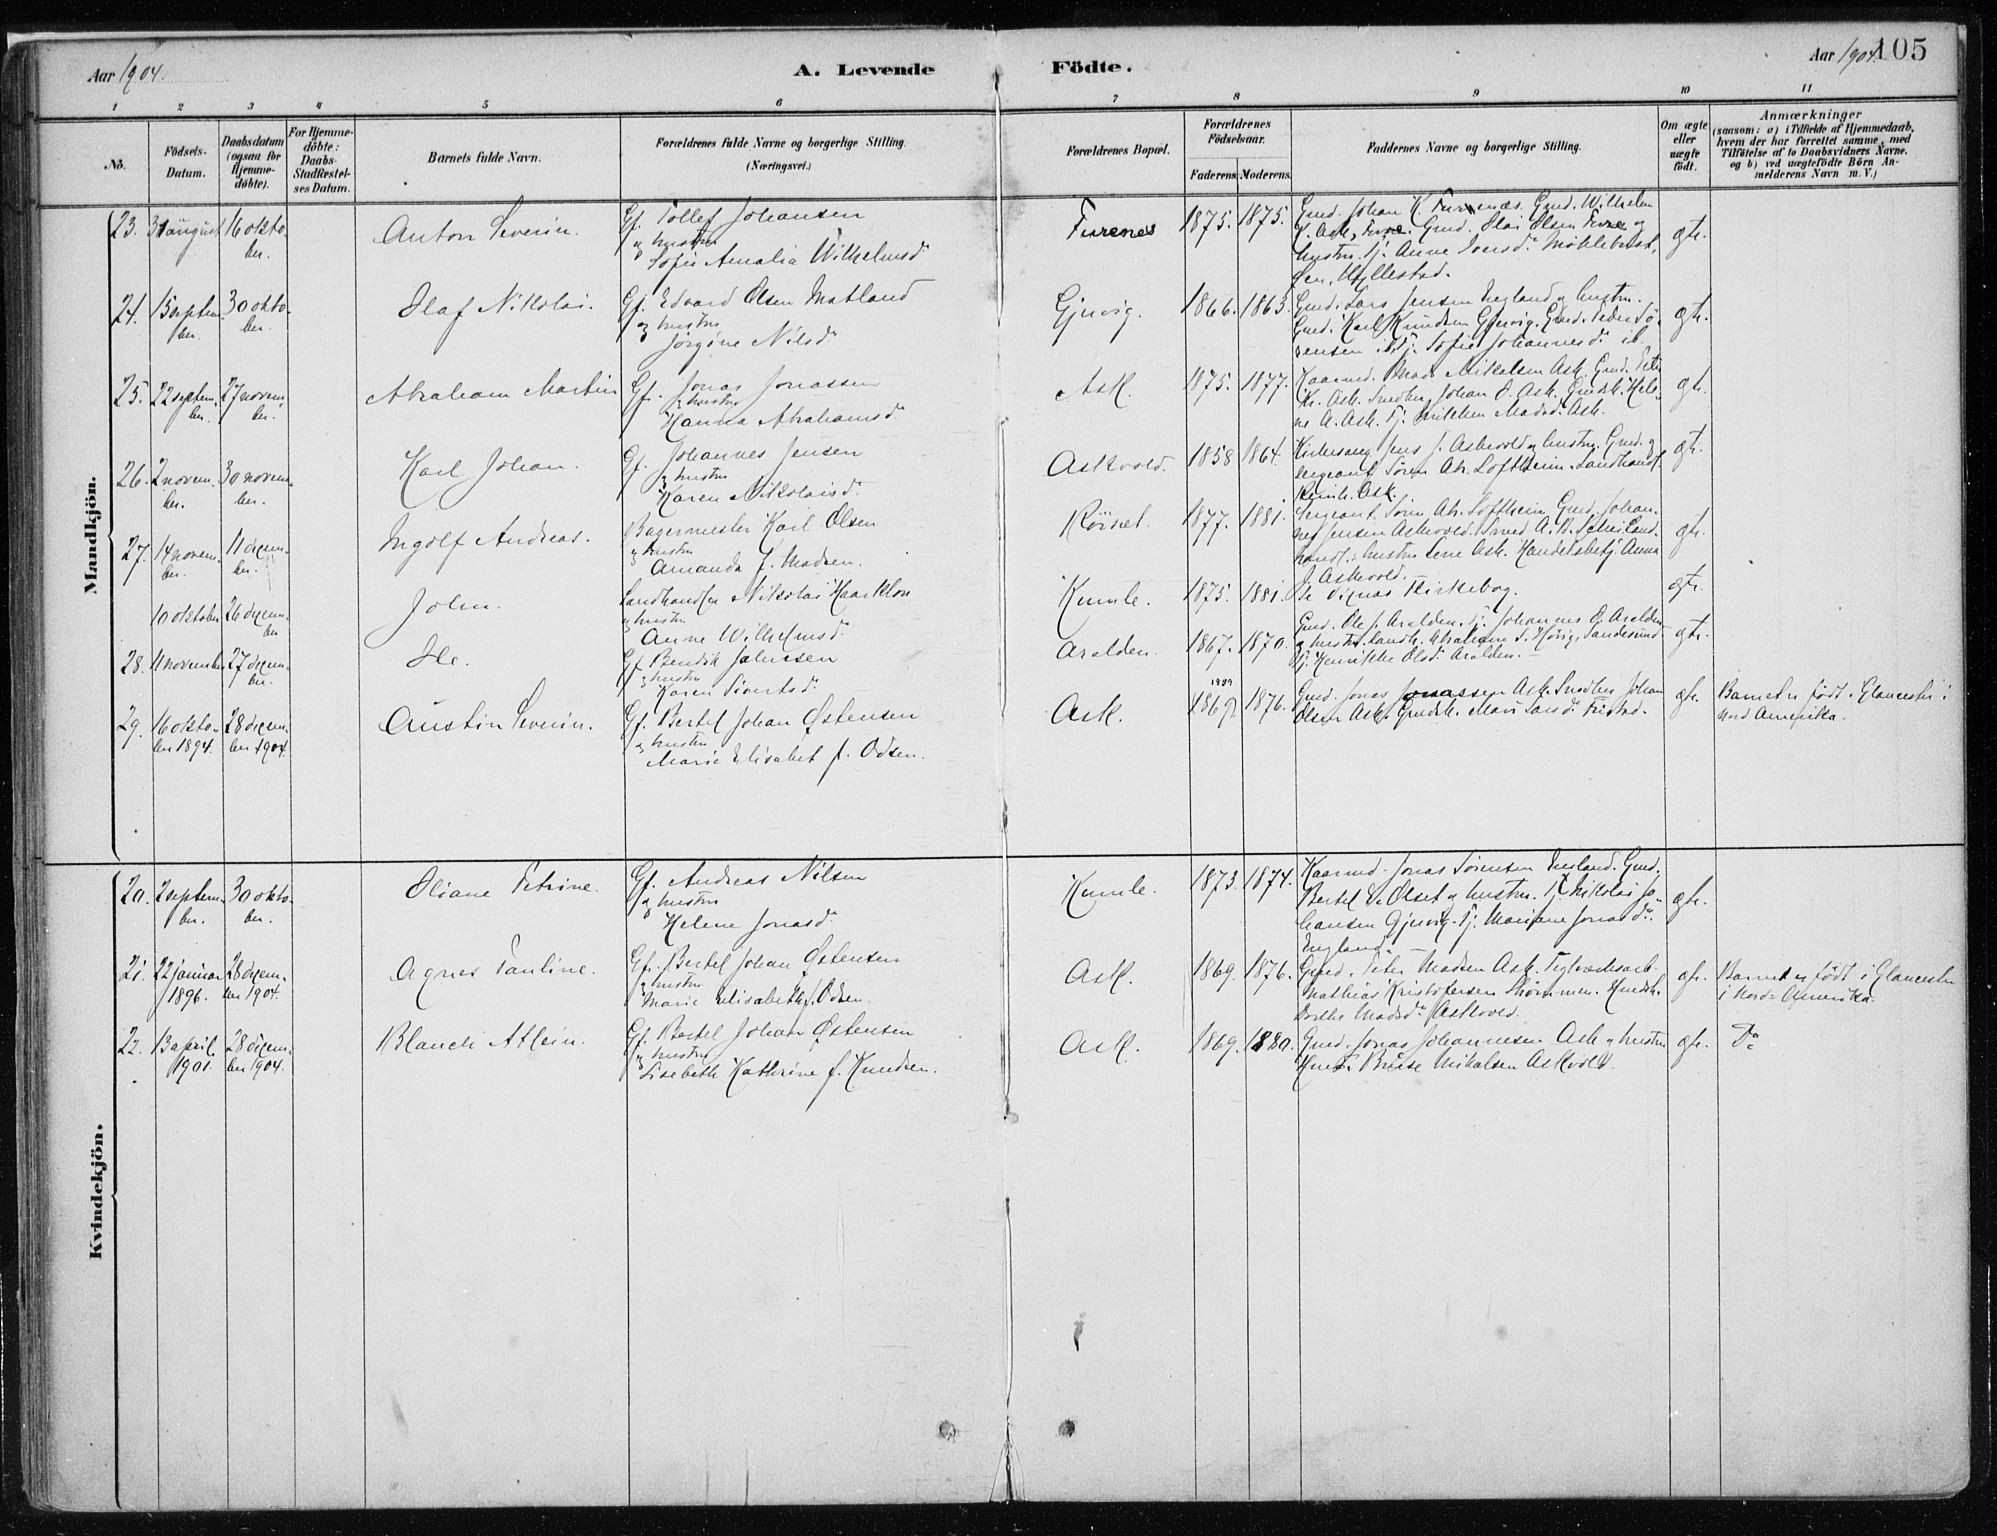 Aar 1904.
A. Levende Födte.
Aar 1904.
105
1 2 3 4 5 6 7 8 9 10 11
No.
Födsels-
Datum.
Daabsdatum
(ogsaa for
Hjemme-
döbte).
For Hjemme-
döbte:
Daabs-
Stadfæstel-
ses Datum.
Barnets fulde Navn.
Forældrenes fulde Navne og borgerlige Stilling.
(Næringsvei.)
Forældrenes Bopæl.
Forældrenes
Födselsaar.
Faderens. Moderens.
Faddernes Navne og borgerlige Stilling.
Om ægte
eller
uægte
födt.
Anmærkninger
(saasom: a) i Tilfælde af Hjemmedaab,
hvem der har forrettet samme, med
Tilföielse af to Daabsvidners Navne.
og b) ved uægtefödte Börn An-
melderens Navn m. V.)
Mandkjön.
23. 31 august 16 okto-
ber.
Anton Severin.
Gf. Tollef Johansen
og hustru
Sofie Amalia Wilhelmsdr
Furenes 1875. 1875.
Gmd. Johan K. Furenæs. Gmd. Wilhelm
K. Ask, Fure. Gmd. Olai Olsen Fure og
hustru. Pj. Anne Iversdr
Hyllestad.
gte.
24. 1 septem-
ber.
30 okto-
ber.
Olaf Nikolai.
Gf. Edvard Olsen Matland
og hustru
Jorgine Nilsdr
Gjervig. 1866. 1863.
Gmd. Lars Jensen England og hustru.
Gmd. Karl Knudsen Gjervig. Gmd. Peder Sö-
rensen ib. Pj. Sofie Johannesdr ib.
gte.
25. 22 septem-
ber.
27 novem-
ber.
Abraham Martin
Gf. Jonas Jonassen
og hustru
Hanna Abrahamsdr
Ask. 1875. 1877.
Kaarmd. Mads Mikalsen Ask. Gmd. Peter
Kr. Ask. Snedker Johan O. Ask. Gmdsk. Hele-
ne A. Ask. Pj. Madsdr Ask.
gte.
26. 2 novem-
ber.
30 novem-
ber.
Karl Johan.
Gf. Johannes Jensen
og hustru
Karen Nikolaisdr
Askvold. 1858 1864.
Kirkesang. Jens J. Askvold og hustru. Gmd. og
sergeant Sören Ab. Loftheim. Landhandl.
Ask.
gte.
27. 14 novem-
ber.
11 decem-
ber.
Ingolf Andreas.
Bagermester Karl Olsen
og hustru
Amanda f. Madsen.
Rörset. 1877. 1881.
Sergeant Sören Ab. Loftheim Gmd. Johan-
nes Jensen Askvold. Land-
handl. hustru Lene Ask. Handelsbetj. Anna
J. Askvold.
gte.
10 oktober 26 decem-
ber
John.
Landhandler Nikolai Haarklou
og hustru
Anne Wilhelmsdr
Kumle. 1875. 1881.
Se Kirkebog.
gte.
28. 11 november 27 decem-
ber.
Ole.
Gf. Bendik Johnsen
og hustru
Karen Sivertsdr
Aralden. 1867. 1870.
Gmd. Ole J. Aralden. Pj. Johannes O. Aralden
og hustru. Landh. Abraham S. Høvig, Sandesund.
Pj. Henrikke Olsdr Aralden.
gte.
29. 16 okto-
ber 1894.
28 decem-
ber 1904.
Austin Severin.
Gf. Bertel Johan Østensen
og hustru
Marie Elisabet f. Odsen.
Ask. 1869 1876.
Gmd. Jonas Jonassen Ask. Snedker Johan
Olsen Ask. Gmdsk. Mari Larsdr
gte.
Barnet er födt i Glaucester i
Nord Amerika.
Kvindekjön.
20. 2 septem-
ber.
30 okto-
ber.
Oliane Petrine.
Gf. Andreas Nilsen
og hustru
Helene Jonasdr
Kumle. 1873. 1874.
Kaarmd. Jonas Sörensen Engeland. Gmd.
Bertel E. Olset og hustru. Pj. Nikolai Jo-
hansen Gjervig. Pj. Mariane Jonasdr
England.
gte.
21. 22 januar
1896.
28 decem-
ber 1904.
Agnes Pauline.
Gf. Bertel Johan Østensen
og hustru
Marie Elisabeth f. Odsen.
Ask. 1869. 1876.
Gmd. Peter Madsen Ask. Teglværksarb.
Mathias Kristofersen Strömmen. Gmdsk.
Dorthe Madsdr Askvold.
gte.
Barnet er födt i Glaucester
i Nord-Amerika.
22. 13 april
1901.
28 decem-
ber 1904.
Blanch Atlein.
Gf. Bertel Johan Østensen
og hustru
Lisebeth Kathrine f. Knudsen.
Ask. 1869. 1880.
Gmd. Jonas Johannesen Ask og hustru
Mikalsen Askvold.
gte.
Do